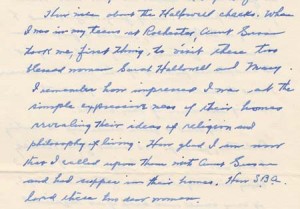 How nice about the Hallowell checks. When
I was in my teens at Rochester, Aunt Susan
took me, first thing, to visit these two
blessed women Sarah Hallowell and Mary.
I remember how impressed I was at the
simple expressiveness of their homes
revealing their ideas of religion and
philosophy of living. How glad I am now
that I called upon them with Aunt Susan
and had supper in their homes. How S.B.A.
loved these two dear women.